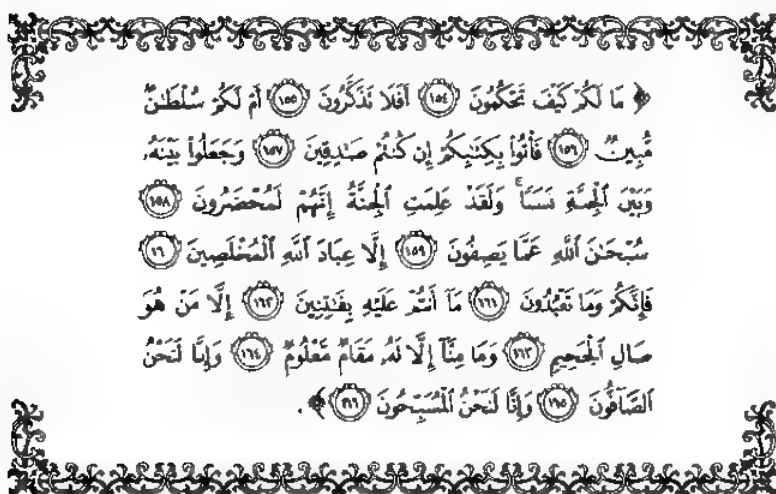 ﴿ مَا لَكُمْ كَيْفَ تَحْكُمُونَ ١٥٤ أَفَلَا تَذَكَّرُونَ ١٥٥ أَمْ لَكُمْ سُلْطَٰنٌ
مُّبِينٌ ١٥٦ فَأْتُوا۟ بِكِتَٰبِكُمْ إِن كُنتُمْ صَٰدِقِينَ ١٥٧ وَجَعَلُوا۟ بَيْنَهُۥ
وَبَيْنَ ٱلْجِنَّةِ نَسَبًا ۚ وَلَقَدْ عَلِمَتِ ٱلْجِنَّةُ إِنَّهُمْ لَمُحْضَرُونَ ١٥٨
سُبْحَٰنَ ٱللَّهِ عَمَّا يَصِفُونَ ١٥٩ إِلَّا عِبَادَ ٱللَّهِ ٱلْمُخْلَصِينَ ١٦٠
فَإِنَّكُمْ وَمَا تَعْبُدُونَ ١٦١ مَآ أَنتُمْ عَلَيْهِ بِفَٰتِنِينَ ١٦٢ إِلَّا مَنْ هُوَ
صَالِ ٱلْجَحِيمِ ١٦٣ وَمَا مِنَّآ إِلَّا لَهُۥ مَقَامٌ مَّعْلُومٌ ١٦٤ وَإِنَّا لَنَحْنُ
ٱلصَّآفُّونَ ١٦٥ وَإِنَّا لَنَحْنُ ٱلْمُسَبِّحُونَ ١٦٦ ﴾ .